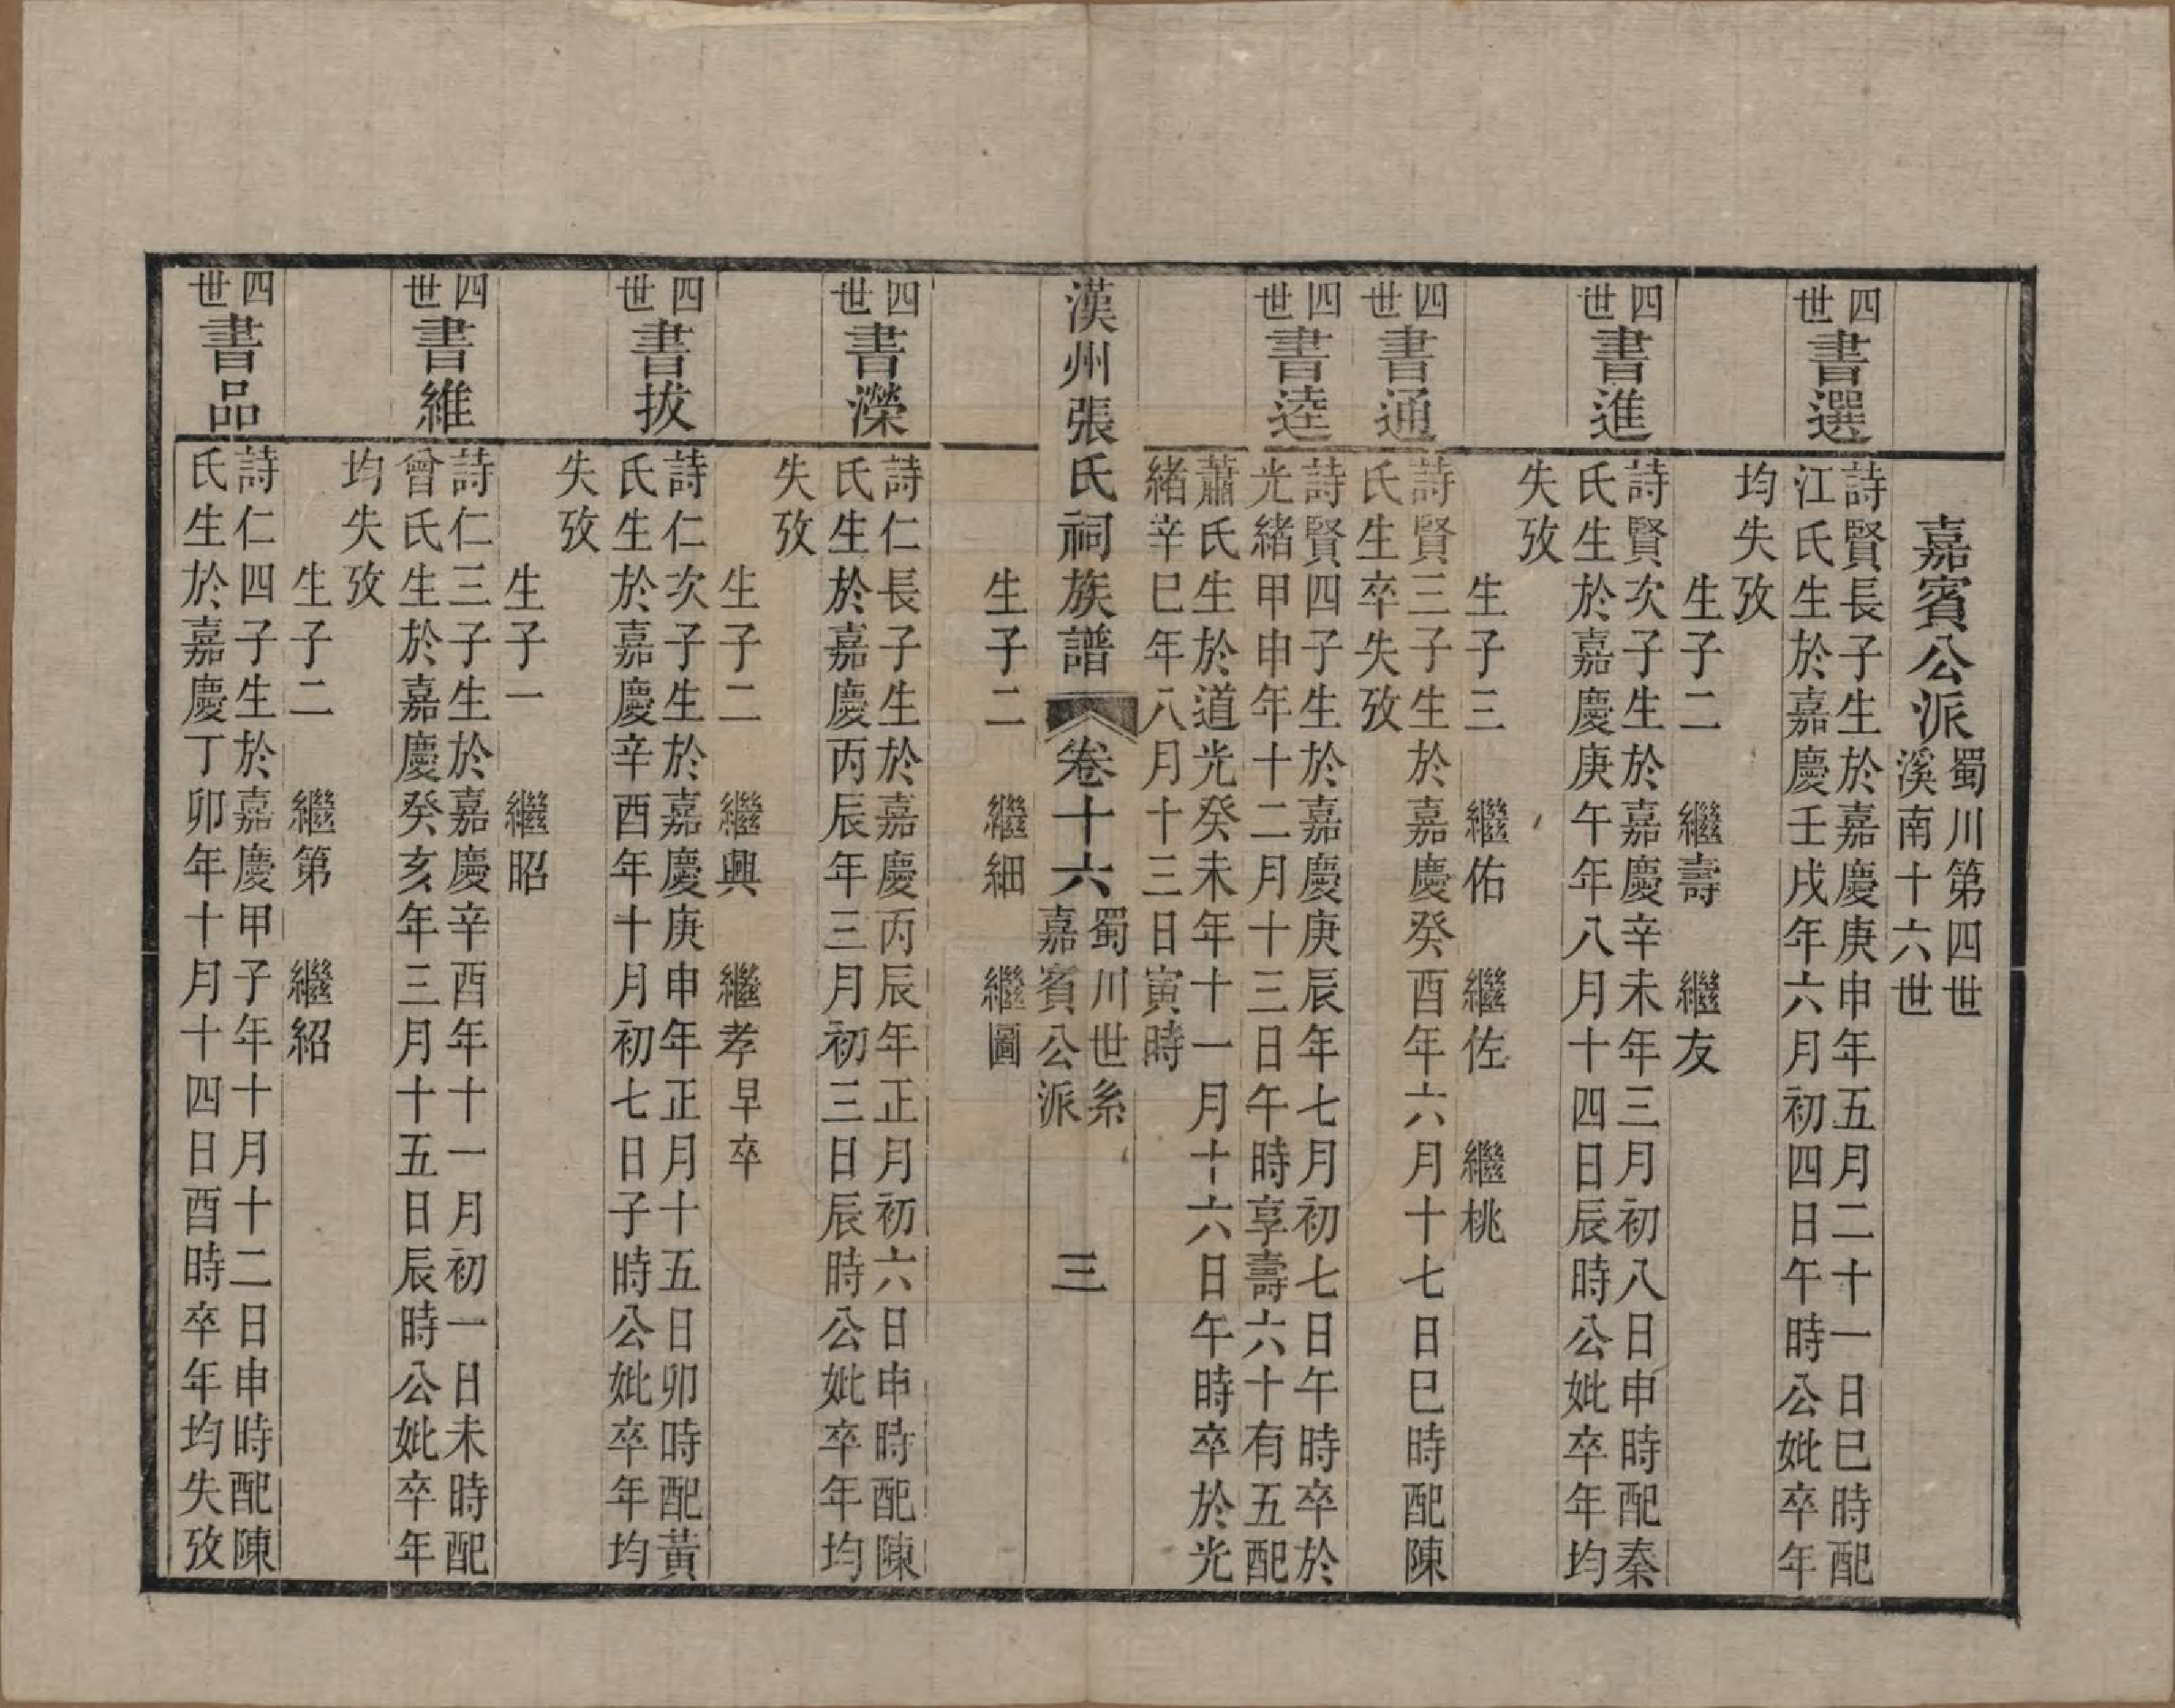 嘉賓公派
蜀川第四世
溪南十六世
四世
書選
詩賢長子生於嘉慶庚申年五月二十一日巳時配
江氏生於嘉慶壬戌年六月初四日午時公妣卒年
均失攷
生子二　繼壽　繼友
四世
書進
詩賢次子生於嘉慶辛未年三月初八日申時配秦
氏生於嘉慶庚午年八月十四日辰時公妣卒年均
失攷
生子三　繼佑　繼佐　繼桃
四世
書通
詩賢三子生於嘉慶癸酉年六月十七日巳時配陳
氏生卒失攷
四世
書逵
詩賢四子生於嘉慶庚辰年七月初七日午時卒於
光緒甲申年十二月十三日午時享壽六十有五配
蕭氏生於道光癸未年十一月十六日午時卒於光
緒辛巳年八月十三日寅時
漢州張氏祠族譜
卷十六
蜀川世系
嘉賓公派
三
生子二　繼細　繼圖
四世
書濼
詩仁長子生於嘉慶丙辰年正月初六日申時配陳
氏生於嘉慶丙辰年三月初三日辰時公妣卒年均
失攷
生子二　繼興　繼孝早卒
四世
書拔
詩仁次子生於嘉慶庚申年正月十五日卯時配黃
氏生於嘉慶辛酉年十月初七日子時公妣卒年均
失攷
生子一　繼昭
四世
書維
詩仁三子生於嘉慶辛酉年十一月初一日未時配
曾氏生於嘉慶癸亥年三月十五日辰時公妣卒年
均失攷
生子二　繼第　繼紹
四世
書品
詩仁四子生於嘉慶甲子年十月十二日申時配陳
氏生於嘉慶丁卯年十月十四日酉時卒年均失攷